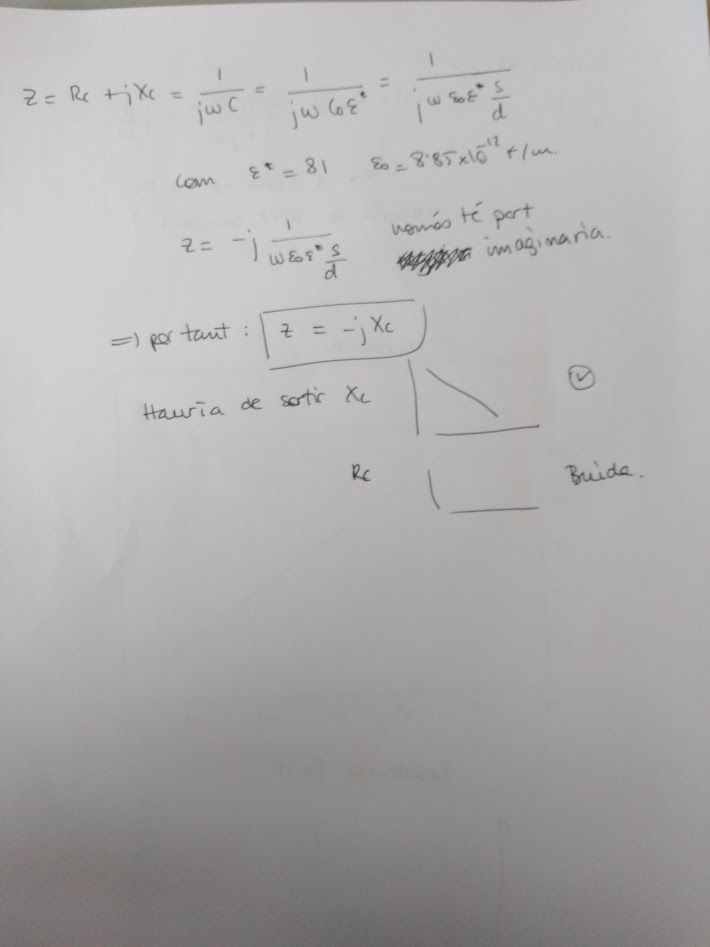 Z = Rc + jXc = 1/(jωC) = 1/(jωC₀ε*) = 1/(jωε₀ε* S/d)
com ε* = 81 ε₀ = 8.85×10⁻¹² F/m.
Z = -j 1/(ωε₀ε* S/d) només té part
imaginaria.
=) per tant : Z = -jXc
Hauría de sortir Xc
Rc Buida.